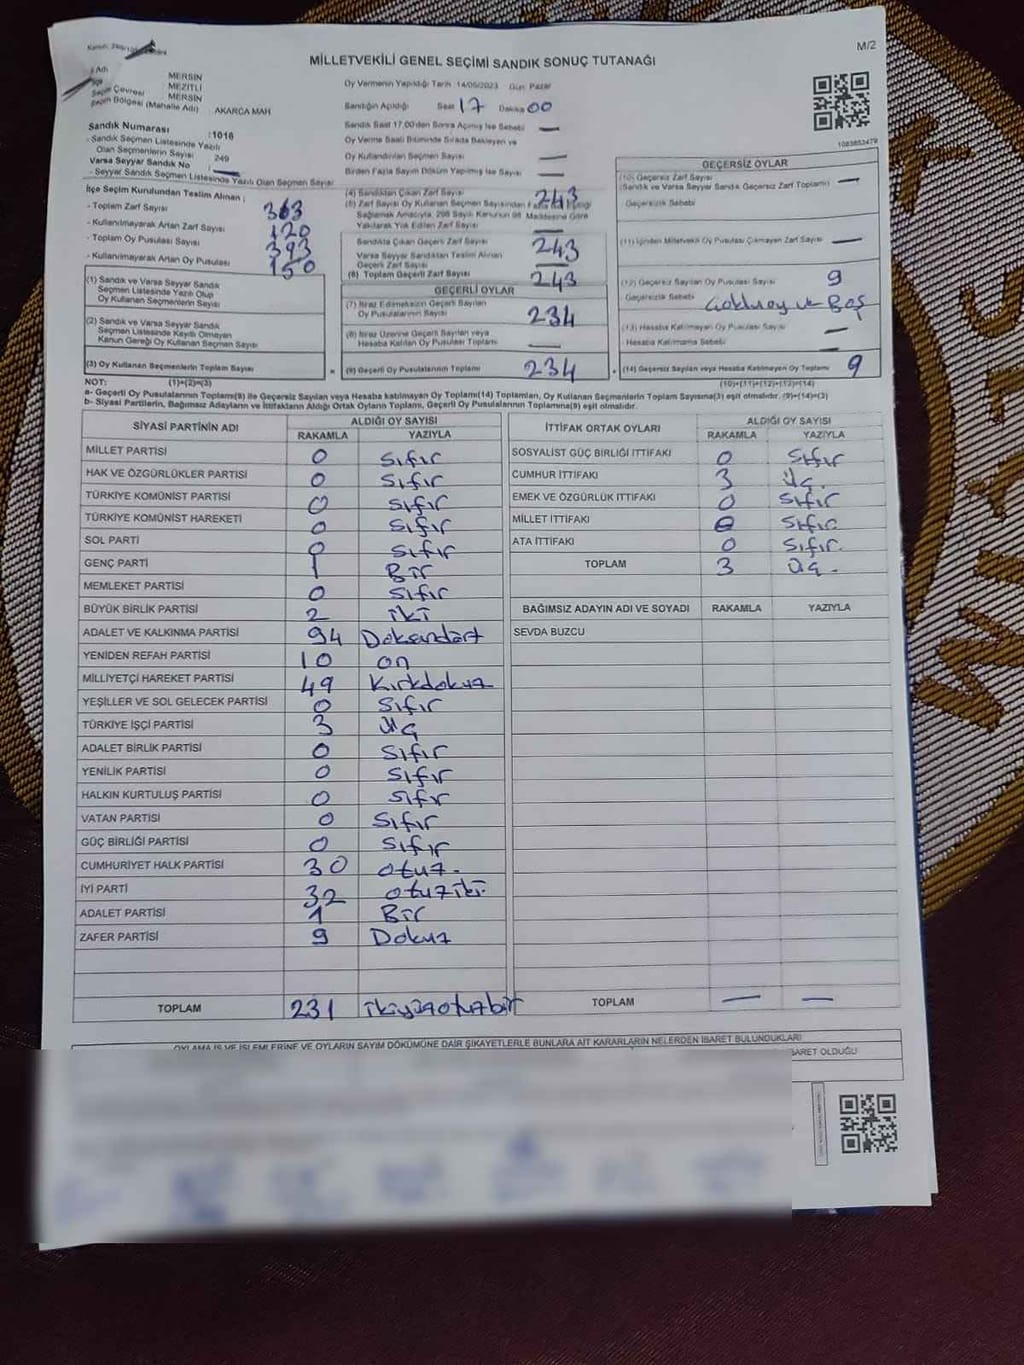 M/2
MİLLETVEKİLİ GENEL SEÇİMİ SANDIK SONUÇ TUTANAĞI
İl Adı MERSİN
İlçe MEZİTLİ
Seçim Çevresi MERSİN
Seçim Bölgesi (Mahalle Adı) : AKARCA MAH
Sandık Numarası :1016
- Sandık Seçmen Listesinde Yazılı
Olan Seçmenlerin Sayısı 249
Varsa Seyyar Sandık No
- Seyyar Sandık Seçmen Listesinde Yazılı Olan Seçmen Sayısı
Oy Vermenin Yapıldığı Tarih: 14/05/2023 Gün: Pazar
Sandığın Açıldığı Saat 17 Dakika 00
Sandık Saat 17:00'den Sonra Açılmış İse Sebebi —
Oy Verme Saati Bitiminde Sırada Bekleyen ve
Oy Kullandırılan Seçmen Sayısı —
Birden Fazla Sayım Döküm Yapılmış İse Sayısı —
1083853479
İlçe Seçim Kurulundan Teslim Alınan ;
- Toplam Zarf Sayısı 363
- Kullanılmayarak Artan Zarf Sayısı 120
- Toplam Oy Pusulası Sayısı 393
- Kullanılmayarak Artan Oy Pusulası 150
(1) Sandık ve Varsa Seyyar Sandık
Seçmen Listesinde Yazılı Olup
Oy Kullanan Seçmenlerin Sayısı
(2) Sandık ve Varsa Seyyar Sandık
Seçmen Listesinde Kayıtlı Olmayan
Kanun Gereği Oy Kullanan Seçmen Sayısı
(3) Oy Kullanan Seçmenlerin Toplam Sayısı
(4) Sandıktan Çıkan Zarf Sayısı 243
(5) Zarf Sayısı Oy Kullanan Seçmen Sayısından Fazla
Sağlamak Amacıyla, 298 Sayılı Kanunun 98 Maddesine Göre
Yakılarak Yok Edilen Zarf Sayısı —
Sandıkta Çıkan Geçerli Zarf Sayısı 243
Varsa Seyyar Sandıktan Teslim Alınan
Geçerli Zarf Sayısı —
(6) Toplam Geçerli Zarf Sayısı 243
GEÇERLİ OYLAR
(7) İtiraz Edilmeksizin Geçerli Sayılan
Oy Pusulalarının Sayısı 234
(8) İtiraz Üzerine Geçerli Sayılan veya
Hesaba Katılan Oy Pusulası Toplamı —
(9) Geçerli Oy Pusulalarının Toplamı 234
GEÇERSİZ OYLAR
(10) Geçersiz Zarf Sayısı —
(Sandık ve Varsa Seyyar Sandık Geçersiz Zarf Toplamı)
Geçersizlik Sebebi
(11) İçinden Milletvekili Oy Pusulası Çıkmayan Zarf Sayısı —
(12) Geçersiz Sayılan Oy Pusulası Sayısı 9
Geçersizlik Sebebi Çokluoy ve Boş
(13) Hesaba Katılmayan Oy Pusulası Sayısı —
Hesaba Katılmama Sebebi —
(14) Geçersiz Sayılan veya Hesaba Katılmayan Oy Toplamı 9
NOT: (1)+(2)=(3) (10)+(11)+(12)+(13)=(14)
a- Geçerli Oy Pusulasının Toplamı(9) ile Geçersiz Sayılan veya Hesaba katılmayan Oy Toplamı(14) Toplamları, Oy Kullanan Seçmenlerin Toplam Sayısına(3) eşit olmalıdır. (9)+(14)=(3)
b- Siyasi Partilerin, Bağımsız Adayların ve İttifakların Aldığı Ortak Oyların Toplamı, Geçerli Oy Pusulalarının Toplamına(9) eşit olmalıdır.
SİYASİ PARTİNİN ADI ALDIĞI OY SAYISI
RAKAMLA YAZIYLA
MİLLET PARTİSİ 0 Sıfır
HAK VE ÖZGÜRLÜKLER PARTİSİ 0 Sıfır
TÜRKİYE KOMÜNİST PARTİSİ 0 Sıfır
TÜRKİYE KOMÜNİST HAREKETİ 0 Sıfır
SOL PARTİ 0 Sıfır
GENÇ PARTİ 1 Bir
MEMLEKET PARTİSİ 0 Sıfır
BÜYÜK BİRLİK PARTİSİ 2 iki
ADALET VE KALKINMA PARTİSİ 94 Doksandört
YENİDEN REFAH PARTİSİ 10 on
MİLLİYETÇİ HAREKET PARTİSİ 49 Kırkdokuz
YEŞİLLER VE SOL GELECEK PARTİSİ 0 Sıfır
TÜRKİYE İŞÇİ PARTİSİ 3 Üç
ADALET BİRLİK PARTİSİ 0 Sıfır
YENİLİK PARTİSİ 0 Sıfır
HALKIN KURTULUŞ PARTİSİ 0 Sıfır
VATAN PARTİSİ 0 Sıfır
GÜÇ BİRLİĞİ PARTİSİ 0 Sıfır
CUMHURİYET HALK PARTİSİ 30 otuz.
İYİ PARTİ 32 otuziki.
ADALET PARTİSİ 1 Bir
ZAFER PARTİSİ 9 Dokuz
TOPLAM 231 ikiyüzotuzbir
İTTİFAK ORTAK OYLARI ALDIĞI OY SAYISI
RAKAMLA YAZIYLA
SOSYALİST GÜÇ BİRLİĞİ İTTİFAKI 0 Sıfır
CUMHUR İTTİFAKI 3 Üç.
EMEK VE ÖZGÜRLÜK İTTİFAKI 0 Sıfır
MİLLET İTTİFAKI 0 Sıfır
ATA İTTİFAKI 0 Sıfır.
TOPLAM 3 Üç.
BAĞIMSIZ ADAYIN ADI VE SOYADI RAKAMLA YAZIYLA
SEVDA BUZCU
TOPLAM — —
OYLAMA İŞ VE İŞLEMLERİNE VE OYLARIN SAYIM DÖKÜMÜNE DAİR ŞİKAYETLERLE BUNLARA AİT KARARLARIN NELERDEN İBARET BULUNDUKLARI
İBARET OLDUĞU